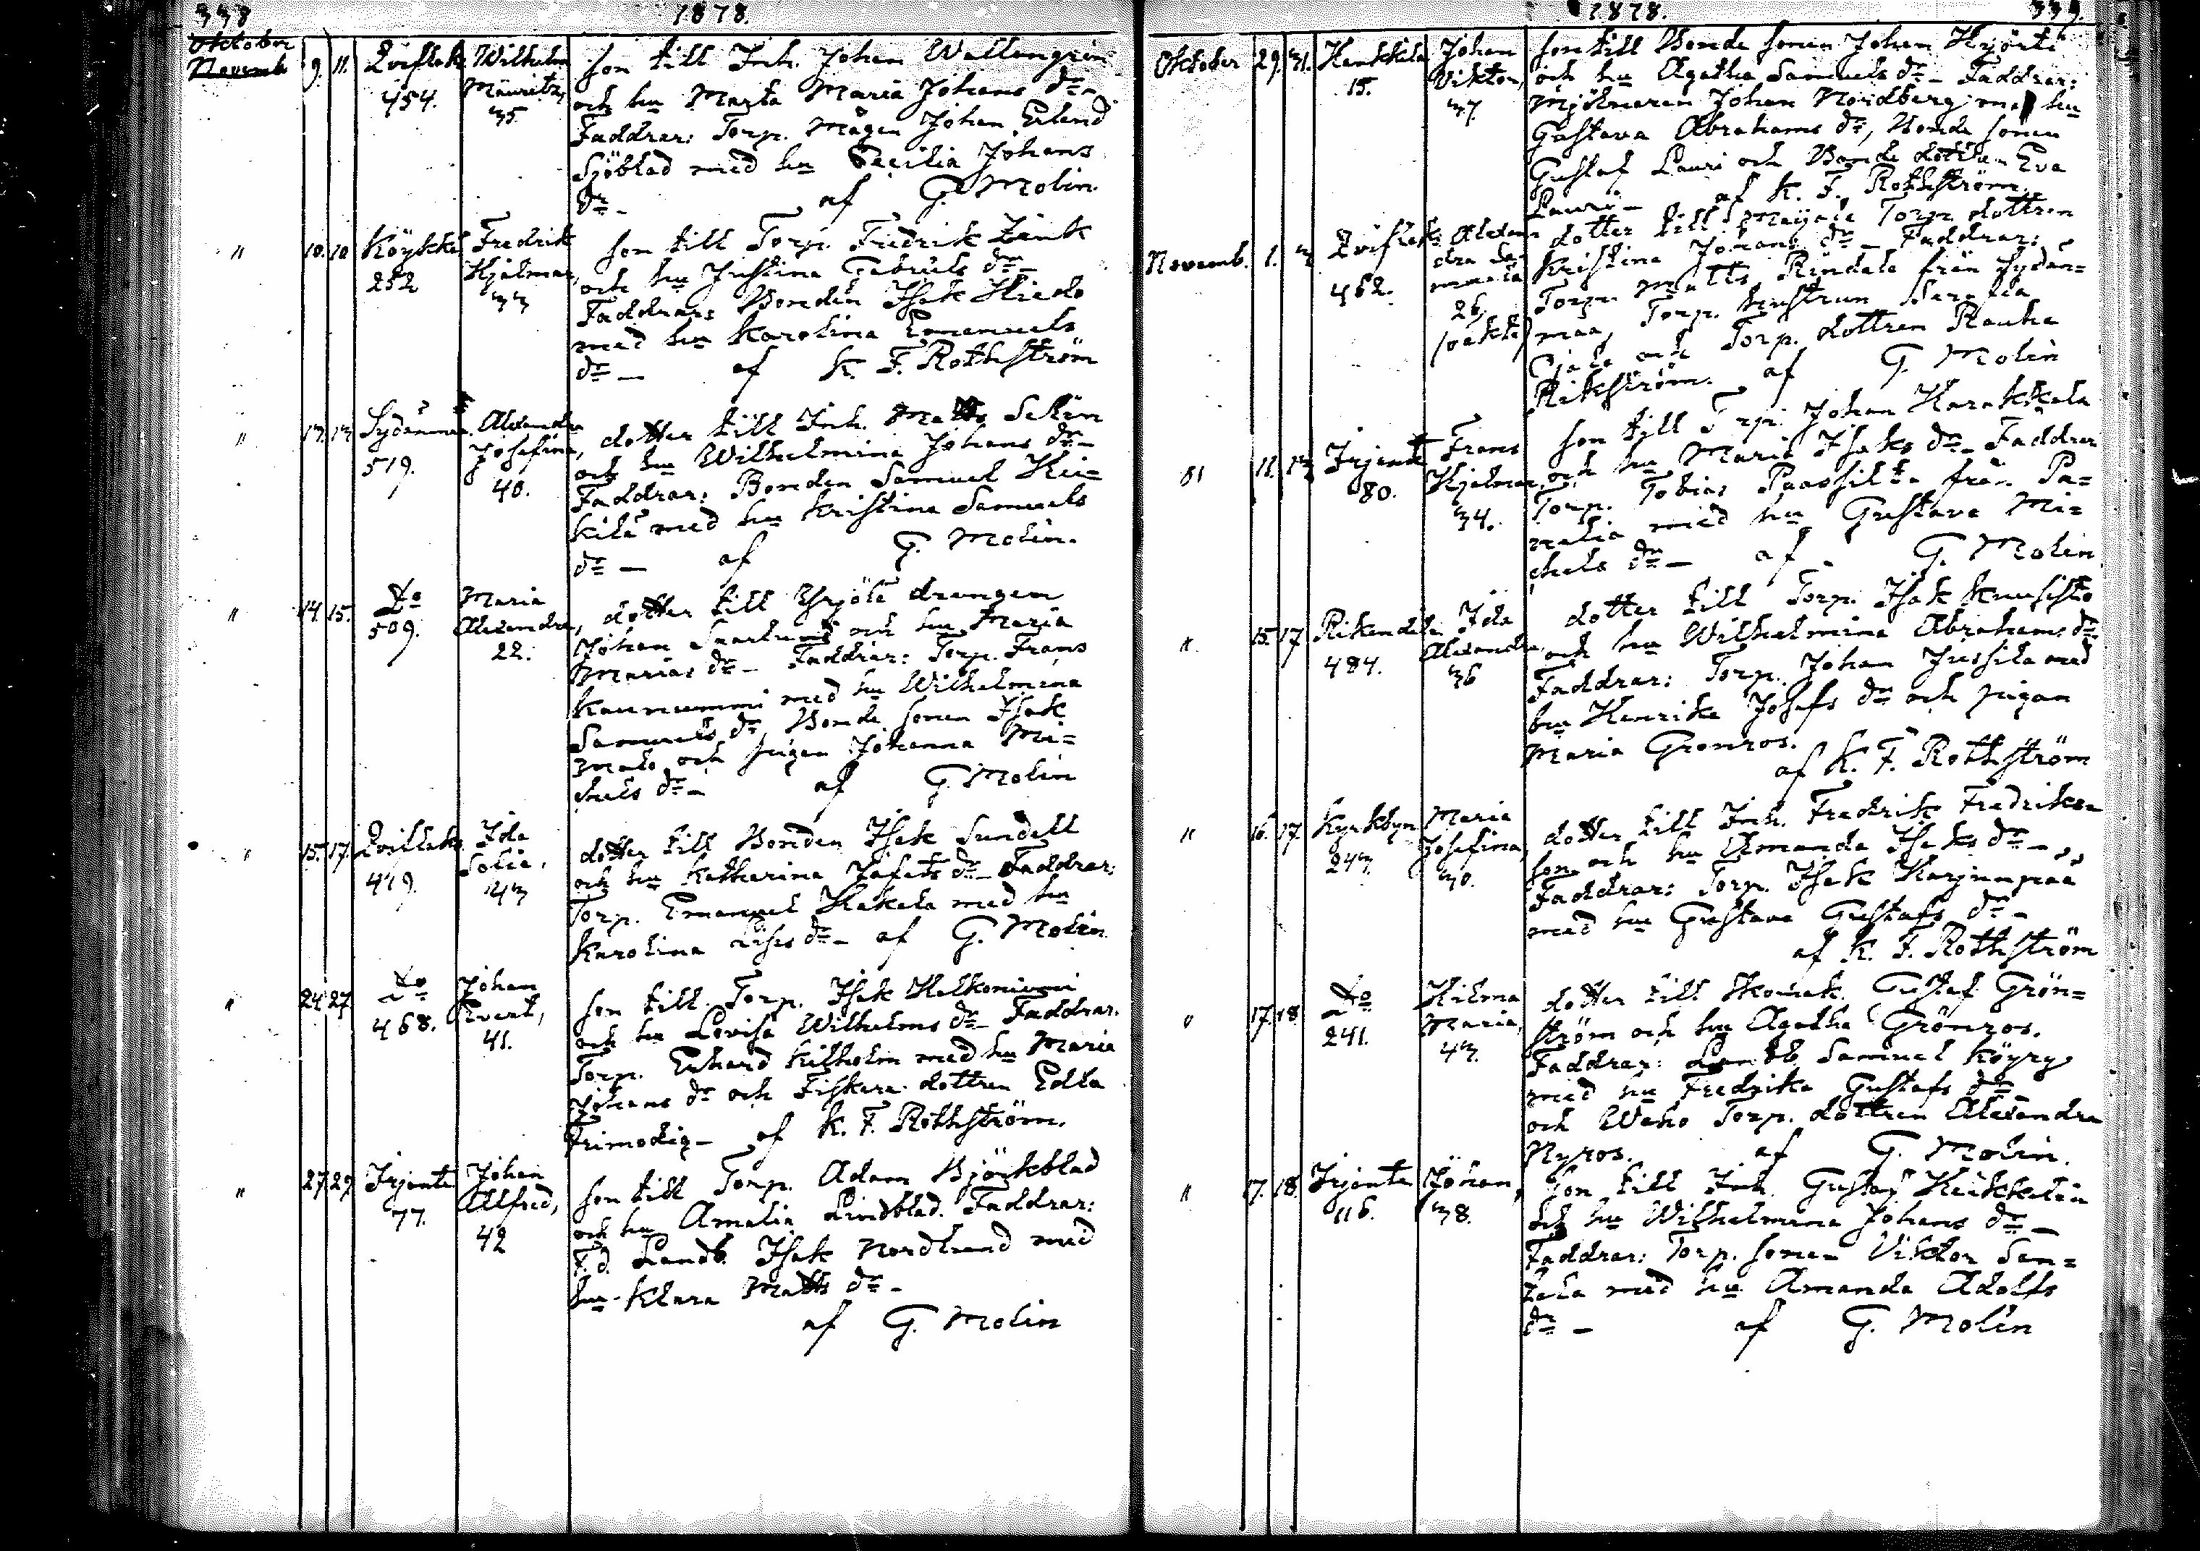 338
1878.
Oktober
Novemb.
9. 11.
Qviflaks
454.
Wilhelm
Mauritz,
35.
son till Inh. Johan Wallengrin
och hu Marta Maria Johans dr -
Faddrar: Torp. Mågen Johan Erland
Sjöblad med hu Cecilia Johans
dr - af G. Molin
" 10. 10
Köykkä
252
Fredrik
Hjalmar,
33
son till Torp. Fredrik Zink
och hu Justina Gabriels dr -
Faddrar: Bonden Isak Hiedo
med hu Karolina Emanuels
dr - af K. F. Rothström
" 13. 13.
Sydänmaa
519.
Alexandra
Josefina,
40.
dotter till Inh. Matts Selin
och hu Wilhelmina Johans dr -
Faddrar: Bonden Samuel Hei-
kilä med hu Kristina Samuels
dr - af G. Molin.
" 14. 15.
Do
509.
Maria
Alexandra,
22.
dotter till Yrjölä drengen
Johan och hu Maria
Marias dr - Faddrar: Torp. Frans
Kaunummi med hu Wilhelmina
Samuels dr, Bonde sonen Isak
och pigan Johanna Mi-
chels dr - af G. Molin
" 15. 17.
Qviflaks
479.
Ida
Sofia,
43
dotter till Bonden Isak Sundell
och hu Katharina Jafets dr - Faddrar:
Torp. Emanuel Hakala med hu
Karolina Lises dr - af G. Molin
" 24. 27
Do
468.
Johan
Evert,
41.
son till Torp. Isak Halkoniemi
och hu Lovisa Wilhelms dr - Faddrar.
Torp. Erhard Kilholm med hu Maria
Johans dr och Fiskare dottren Edla
Frimodig - af K. F. Rothström.
" 27. 29.
Irjanta
77.
Johan
Alfred,
42
son till Torp. Adam Björkblad
och hu Amalia Lindblad. Faddrar:
F. d. Landb. Isak Nordlund med
hu Klara Matts dr -
af G. Molin
1878.
339.
Oktober 29. 31.
Hankkila
15.
Johan
Viktor,
37.
son till Bonde sonen Johan Hyörti
och hu Agatha Samuels dr - Faddrar:
Mjölnaren Johan Nordberg med hu
Gustava Abrahams dr, Bonde sonen
Gustaf Lauri och Bonde dottren Eva
Lauri - af K. F. Rothström.
Novemb. 1. 3
Qviflaks
462.
Alexan-
dra
26,
(oäkta)
dotter till Torp. dottren
Kristina Johans dr - Faddrar:
Torp. Matts Rindala från Sydän-
maa, Torp. hustrun Serafia
Ojala och Torp. dottren Rauha
Rikström. af G. Molin
11. 13
Irjanta
80.
Frans
Hjalmar,
34.
son till Torp. Johan Harakkala
och hu Maria Isaks dr - Faddrar
Torp. Tobias Paassilta från Pa-
nelia med hu Gustava Mi-
chels dr - af G. Molin
" 15. 17.
Rikandila
484.
Ida
Alexandra
36
dotter till Torp. Isak Kuusisto
och hu Wilhelmina Abrahams dr.
Faddrar: Torp. Johan Jussila med
hu Henrika Josefs dr och pigan
Maria Gronros.
af K. F. Rothström
" 16. 17.
Kyrkbyn
243.
Maria
Josefina,
30.
dotter till Inh. Fredrik Fredriks-
son och hu Amanda Isaks dr -
Faddrar: Torp. Isak Karjunpää
med hu Gustava Gustafs dr -
af K. F. Rothström
" 17. 18.
Do
241.
Hilma
Maria,
43.
dotter till Skomak. Gustaf Grön-
ström och hu Agatha Grönros.
Faddrar: Landb Samuel Köyry
med hu Fredrika Gustafs dr -
och Torp. dottren Alexandra
Nyros. af G. Molin.
" 17. 18.
Irjanta
116.
Johan,
38.
son till Inh. Gustaf Heikkilin
och hu Wilhelmina Johans dr -
Faddrar: Torp. sonen Viktor San-
tala med hu Amanda Adolfs
dr - af G. Molin